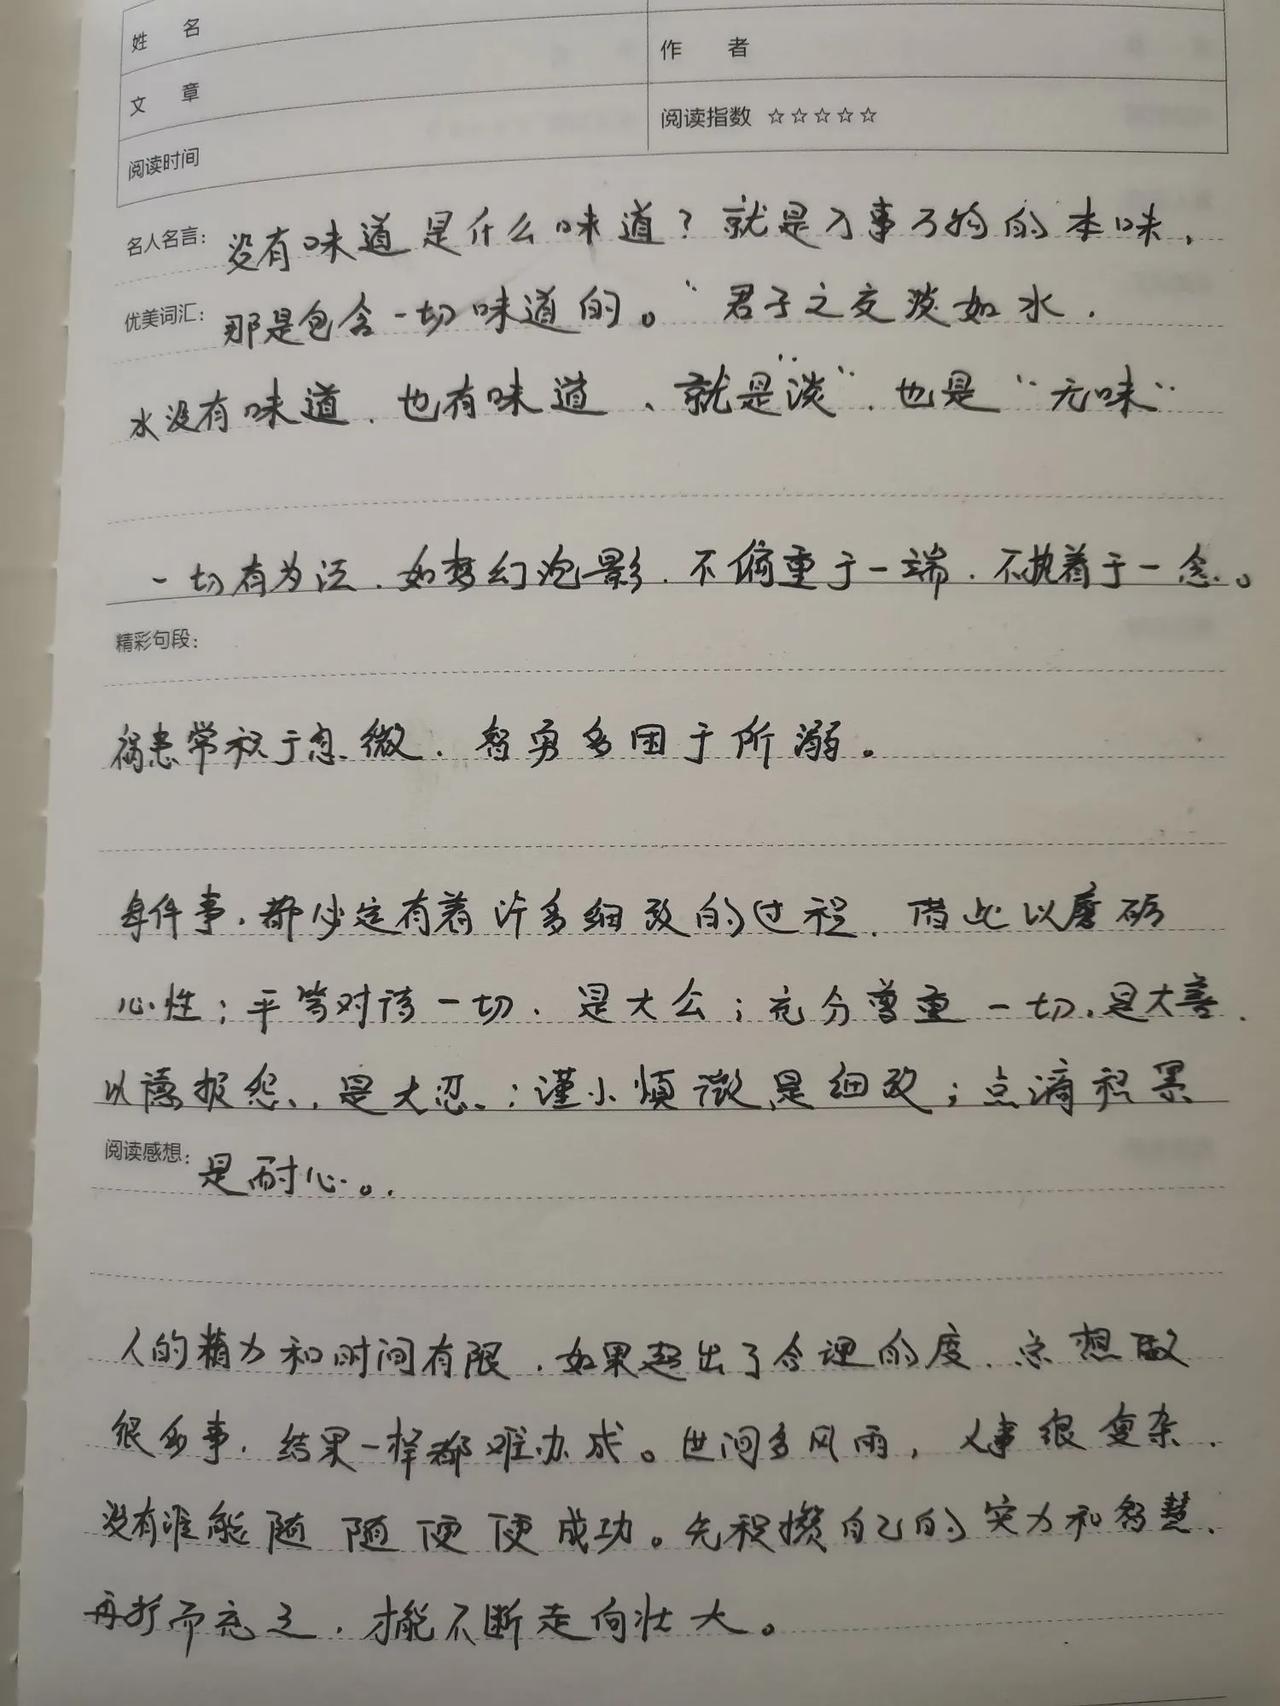 姓 名
作 者
文 章
阅读指数 ☆☆☆☆☆
阅读时间
名人名言: 没有味道是什么味道？就是万事万物的本味，
优美词汇: 那是包含一切味道的。“君子之交淡如水，
水没有味道，也有味道、就是“淡”，也是“无味”
一切有为法，如梦幻泡影，不偏重于一端，不执着于一念。
精彩句段:
祸患常积于忽微，智勇多困于所溺。
每件事，都必定有着许多细致的过程，借此以磨砺
心性；平等对待一切，是大公；充分尊重一切，是大善，
以德报怨，是大忍；谨小慎微是细致；点滴积累
阅读感想: 是耐心。
人的精力和时间有限，如果超出了合理的度，总想做
很多事，结果一样都难办成。世间多风雨，人事很复杂，
没有谁能随随便便成功。先积攒自己的实力和智慧，
再扩而充之，才能不断走向壮大。